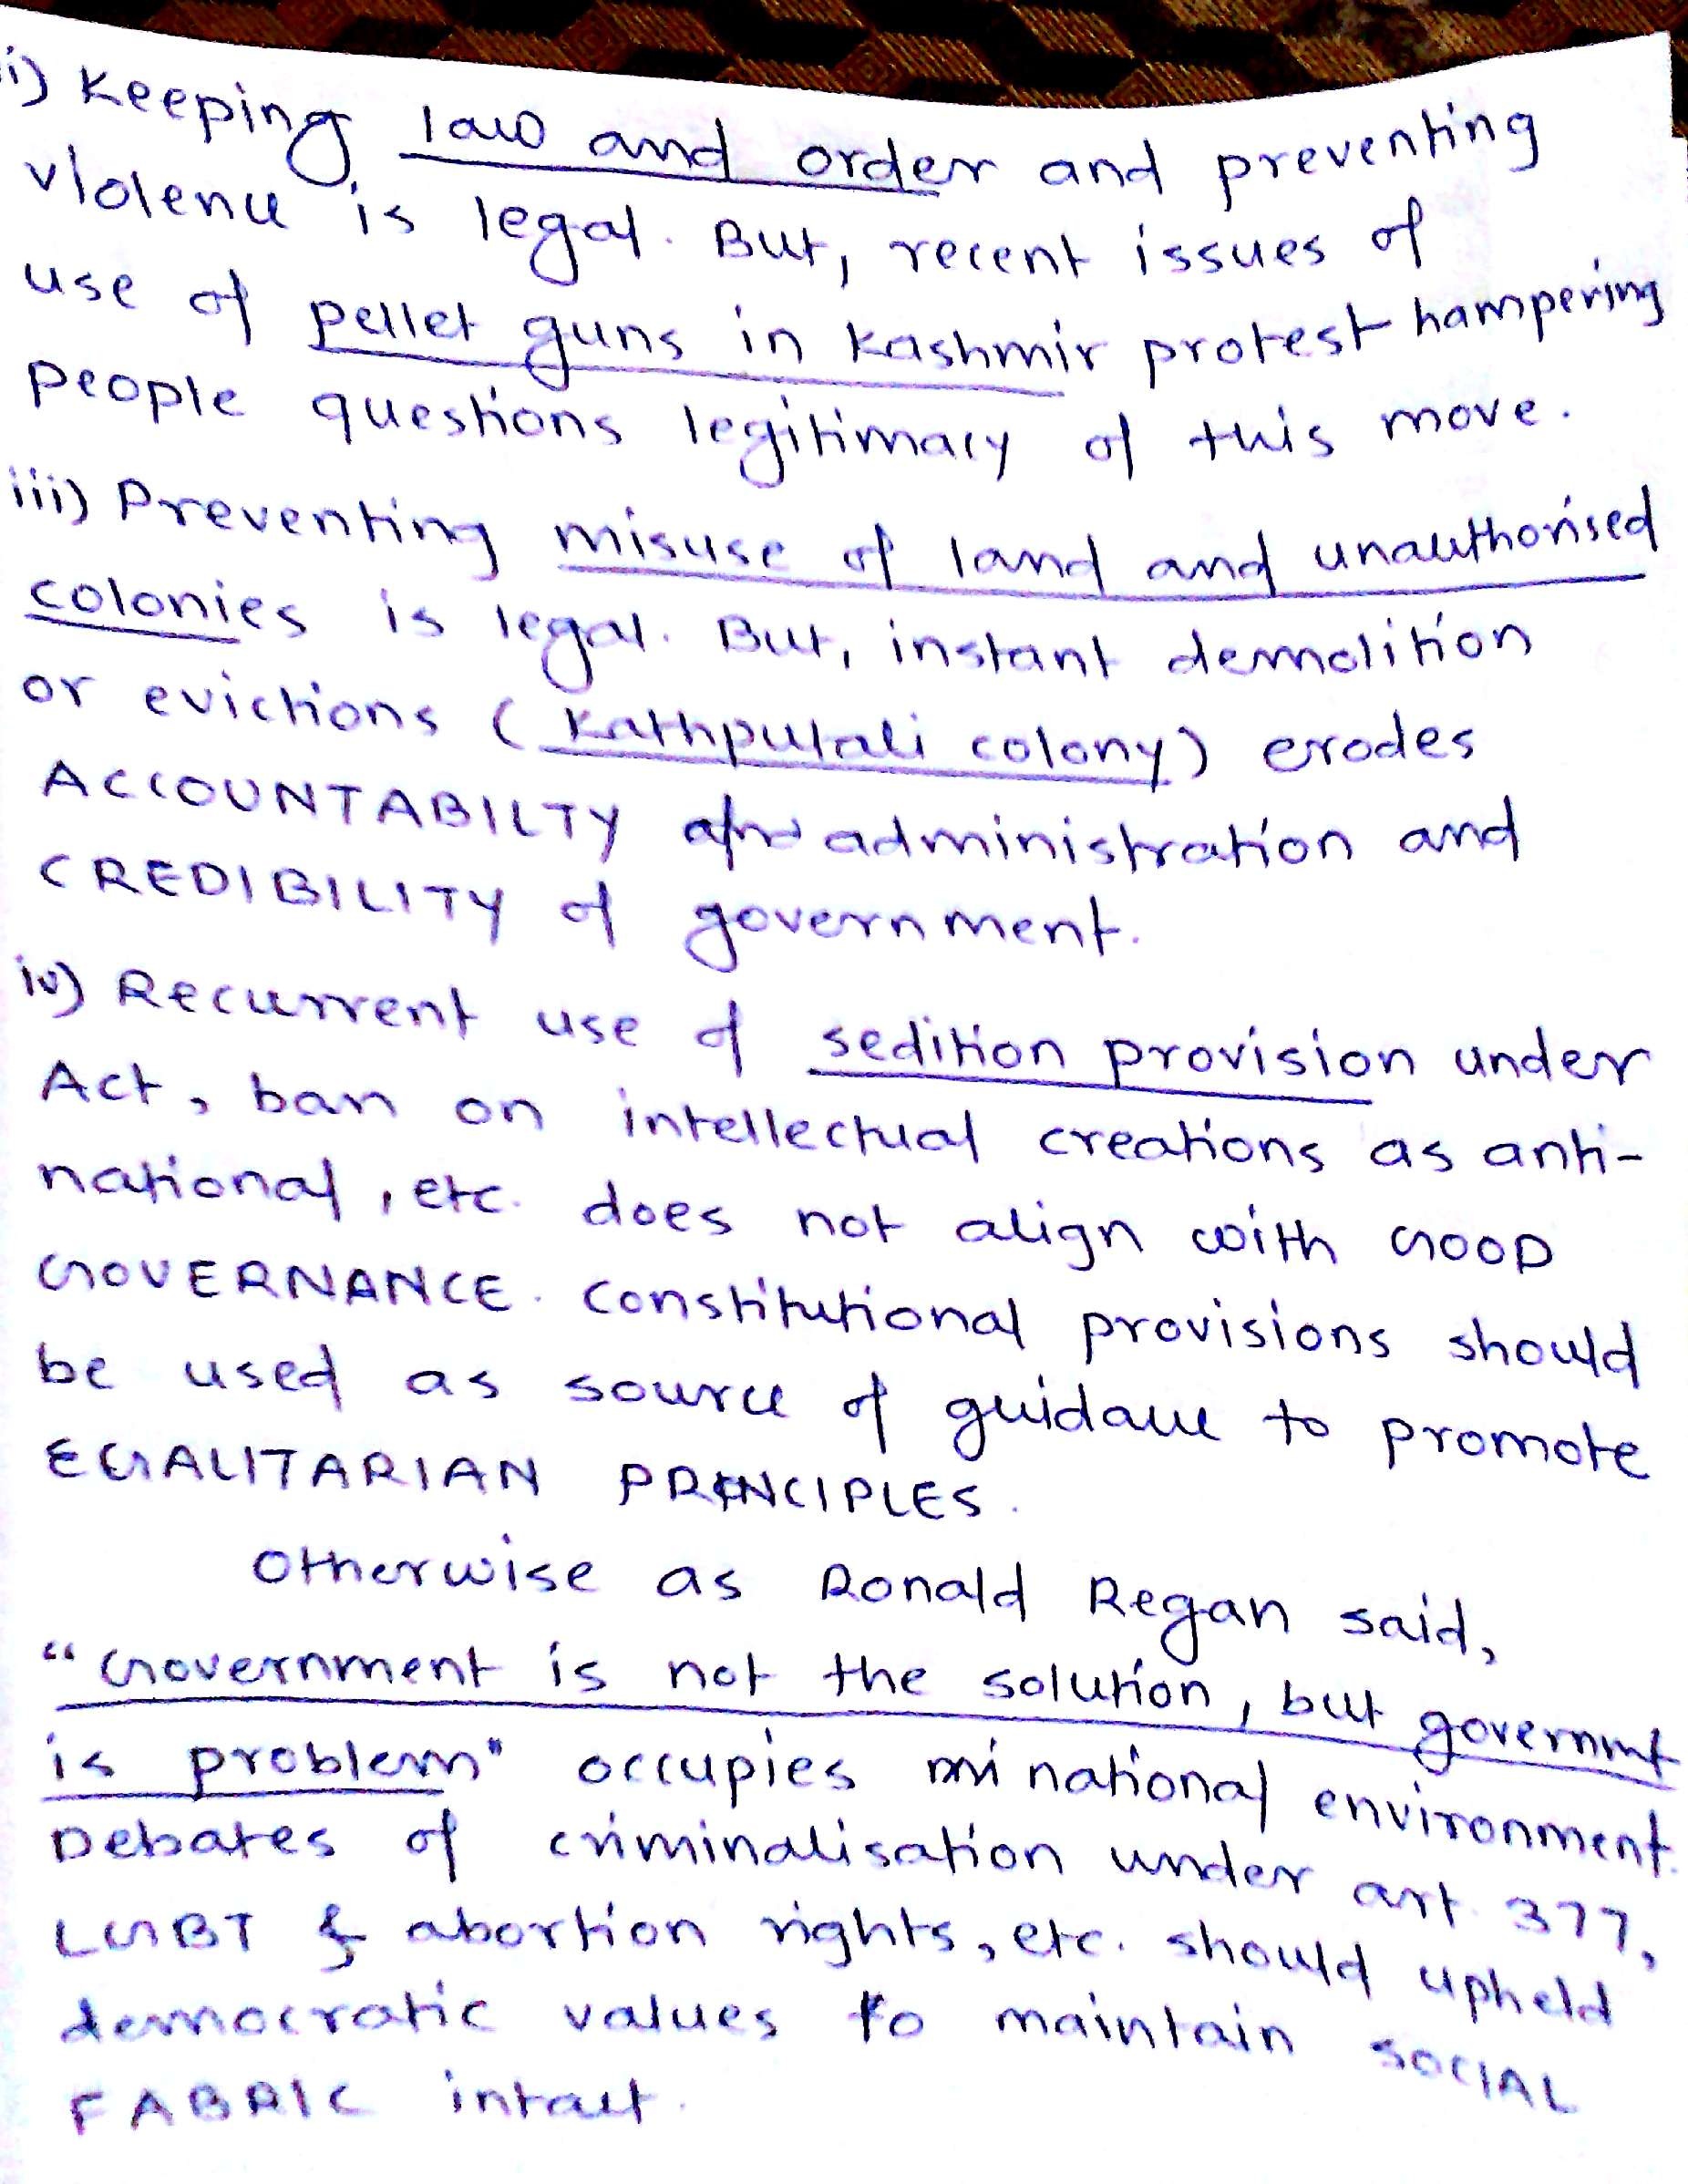 i) Keeping law and order and preventing
violence is legal. But, recent issues of
use of pellet guns in Kashmir protest hampering
people questions legitimacy of this move.
iii) Preventing misuse of land and unauthorised
colonies is legal. But, instant demolition
or evictions (Kathputali colony) erodes
ACCOUNTABILTY of administration and
CREDIBILITY of government.
iv) Recurrent use of sedition provision under
Act, ban on intellectual creations as anti-
national, etc. does not align with GOOD
GOVERNANCE. Constitutional provisions should
be used as source of guidance to promote
EGALITARIAN PRINCIPLES.
Otherwise as Ronald Regan said,
"Government is not the solution, but government
is problem" occupies national environment.
Debates of criminalisation under art. 377,
LGBT & abortion rights, etc. should upheld
democratic values to maintain SOCIAL
FABRIC intact.